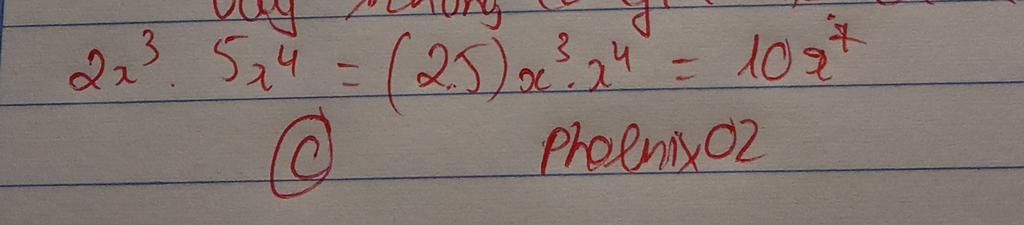 2x³ . 5x⁴ = (2.5)x³.x⁴ = 10x⁷
© PhoenixO2